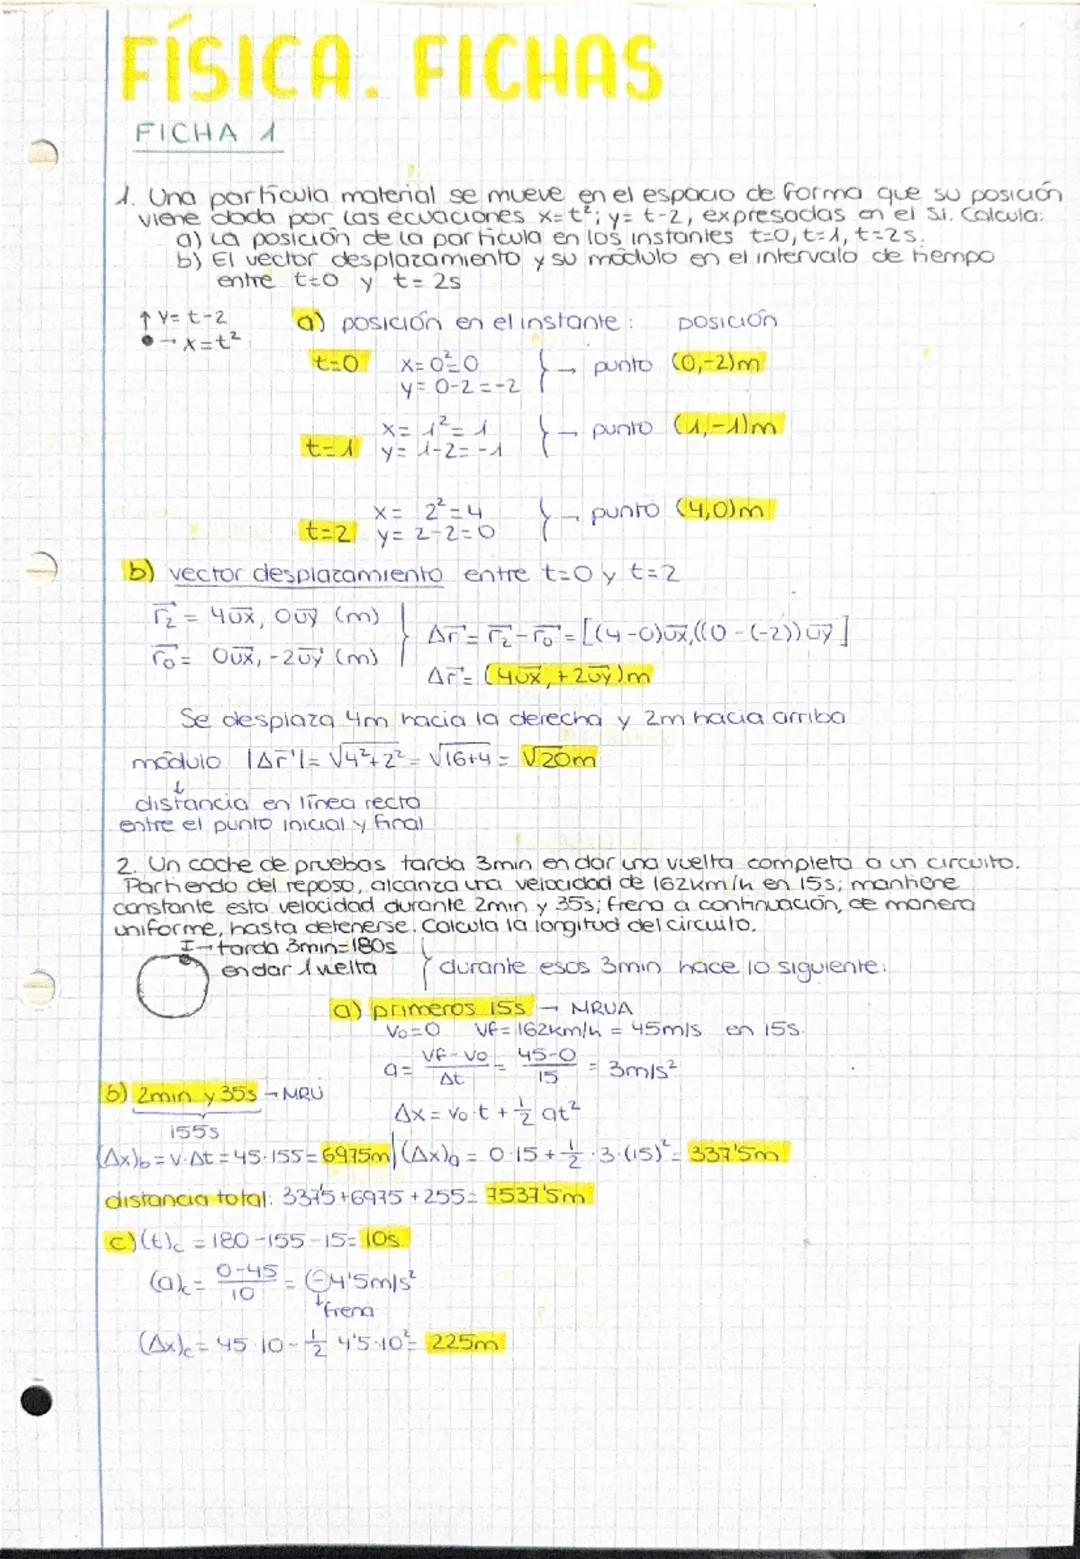 FÍSICA. FICHAS
FICHA 1
1. Una partícula material se mueve en el espacio de forma que su posición
viene dada por las ecuaciones x=t²; y= t-2, expresadas en el SI. Calcula:
a) La posición de la partícula en los instantes t=0, t=1, t=2s.
b) El vector desplazamiento y su módulo en el intervalo de tiempo
entre t=0 y t= 2s
↑ y= t-2
• → x=t²
a) posición en el instante: posición
t=0 x= 0²=0
y= 0-2=-2 } → punto (0,-2)m
x= 1²= 1
t=1 y= 1-2= -1 } → punto (1,-1)m
x= 2²=4
t=2 y= 2-2=0 } → punto (4,0)m
b) vector desplazamiento entre t=0 y t=2
r₂ = 4ux, 0uy (m)
r₀ = 0ux, -2uy (m)
Δr = r₂ - r₀ = [(4-0)ux,((0-(-2))uy]
Δr = (4ux, +2uy)m
Se desplaza 4m hacia la derecha y 2m hacia arriba
módulo |Δr|= √4²+2² = √16+4 = √20m
↓
distancia en línea recta
entre el punto inicial y final
2. Un coche de pruebas tarda 3min en dar una vuelta completa a un circuito.
Partiendo del reposo, alcanza una velocidad de 162km/h en 15s; mantiene
constante esta velocidad durante 2min y 35s; frena a continuación, de manera
uniforme, hasta detenerse. Calcula la longitud del circuito.
I→ tarda 3min=180s
en dar 1 vuelta
{ durante esos 3min hace lo siguiente:
a) primeros 15s → MRUA
V₀=0 Vf= 162km/h = 45m/s en 15s.
a= Vf-V₀/Δt = 45-0/15 = 3m/s²
b) 2min y 35s → MRU
155s
Δx = V₀·t + 1/2 at²
(Δx)b = v·Δt = 45·155= 6975m | (Δx)a = 0·15 + 1/2 ·3·(15)² = 337'5m
distancia total: 337'5+6975+255= 7537'5m
c) (t)c = 180-155-15= 10s
(a)c = 0-45/10 = -4'5m/s²
↓ frena
(Δx)c = 45·10 - 1/2 4'5·10² = 225m